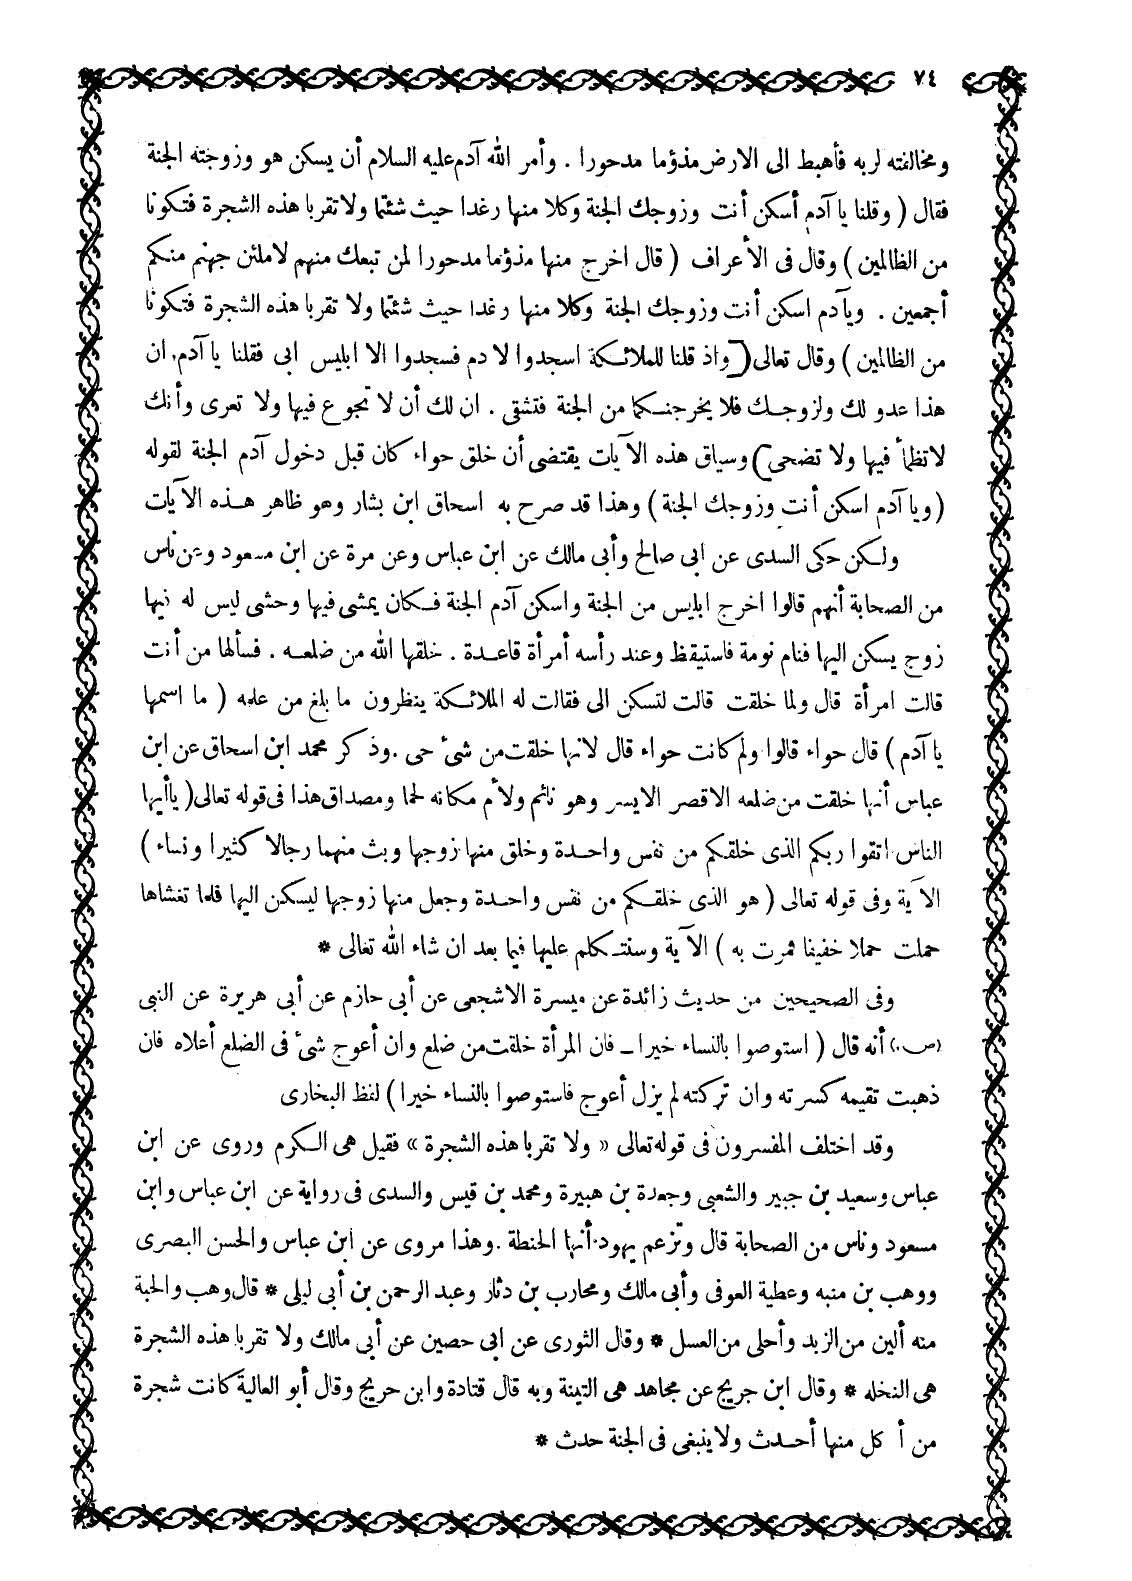 ٧٤
ومخالفته لربه فأهبط الى الارض مذؤما مدحورا . وأمر الله آدم عليه السلام أن يسكن هو وزوجته الجنة
فقال ( وقلنا يا آدم أسكن أنت وزوجك الجنة وكلا منها رغدا حيث شئتما ولا تقربا هذه الشجرة فتكونا
من الظالمين ) وقال فى الأعراف ( قال اخرج منها مذؤما مدحورا لمن تبعك منهم لاملئن جهنم منكم
أجمعين . ويآدم اسكن أنت وزوجك الجنة وكلا منها رغدا حيث شئتما ولا تقربا هذه الشجرة فتكونا
من الظالمين ) وقال تعالى ( واذ قلنا للملائكة اسجدوا لادم فسجدوا الا ابليس ابى فقلنا يا آدم ان
هذا عدو لك ولزوجك فلا يخرجنكما من الجنة فتشقى . ان لك أن لا تجوع فيها ولا تعرى وأنك
لاتظمأ فيها ولا تضحى ) وسياق هذه الآيات يقتضى أن خلق حواء كان قبل دخول آدم الجنة لقوله
( ويا آدم اسكن أنت وزوجك الجنة ) وهذا قد صرح به اسحاق ابن بشار وهو ظاهر هذه الآيات
ولكن حكى السدى عن ابى صالح وأبى مالك عن ابن عباس وعن مرة عن ابن مسعود وعن ناس
من الصحابة أنهم قالوا اخرج ابليس من الجنة واسكن آدم الجنة فكان يمشى فيها وحشى ليس له فيها
زوج يسكن اليها فنام نومة فاستيقظ وعند رأسه أمرأة قاعدة . خلقها الله من ضلعه . فسألها من أنت
قالت امرأة قال ولما خلقت قالت لتسكن الى فقالت له الملائكة ينظرون ما بلغ من علمه ( ما اسمها
يا آدم ) قال حواء قالوا ولم كانت حواء قال لانها خلقت من شئ حى . وذكر محمد ابن اسحاق عن ابن
عباس أنها خلقت من ضلعه الاقصر الايسر وهو نائم ولأم مكانه لحما ومصداق هذا فى قوله تعالى ( يا أيها
الناس اتقوا ربكم الذى خلقكم من نفس واحدة وخلق منها زوجها وبث منهما رجالا كثيرا ونساء )
الآية وفى قوله تعالى ( هو الذى خلقكم من نفس واحدة وجعل منها زوجها ليسكن اليها فلما تغشاها
حملت حملا خفيفا فمرت به ) الآية وسنتكلم عليها فيما بعد ان شاء الله تعالى *
وفى الصحيحين من حديث زائدة عن ميسرة الاشجعى عن أبى حازم عن أبى هريرة عن النبى
(ص.) أنه قال ( استوصوا بالنساء خيرا ـ فان المرأة خلقت من ضلع وان أعوج شئ فى الضلع أعلاه فان
ذهبت تقيمه كسرته وان تركته لم يزل أعوج فاستوصوا بالنساء خيرا ) لفظ البخارى
وقد اختلف المفسرون فى قوله تعالى « ولا تقربا هذه الشجرة » فقيل هى الكرم وروى عن ابن
عباس وسعيد بن جبير والشعبى وجعدة بن هبيرة ومحمد بن قيس والسدى فى رواية عن ابن عباس وابن
مسعود وناس من الصحابة قال وتزعم يهود أنها الحنطة . وهذا مروى عن ابن عباس والحسن البصرى
ووهب بن منبه وعطية العوفى وأبى مالك ومحارب بن دثار وعبد الرحمن بن أبى ليلى * قال وهب والحبة
منه ألين من الزبد وأحلى من العسل * وقال الثورى عن ابى حصين عن أبى مالك ولا تقربا هذه الشجرة
هى النخله * وقال ابن جريج عن مجاهد هى التينة وبه قال قتادة وابن جريج وقال أبو العالية كانت شجرة
من أكل منها أحدث ولا ينبغى فى الجنة حدث *